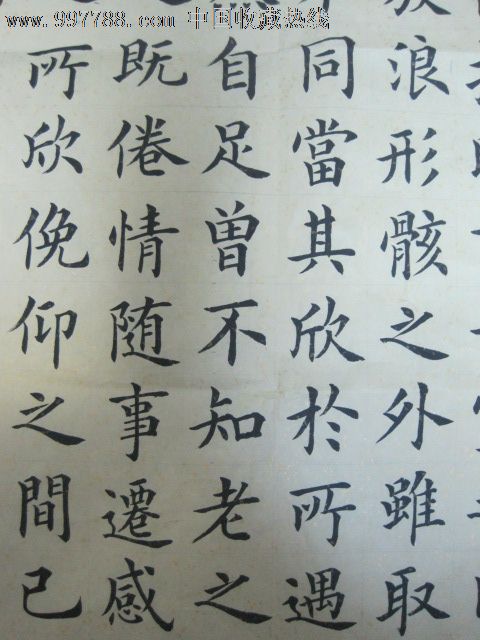 www.997788.com 中国收藏热线
放浪形骸之外雖取
同當其欣於所遇
自足曽不知老之
既倦情随事遷感
所欣俛仰之間已